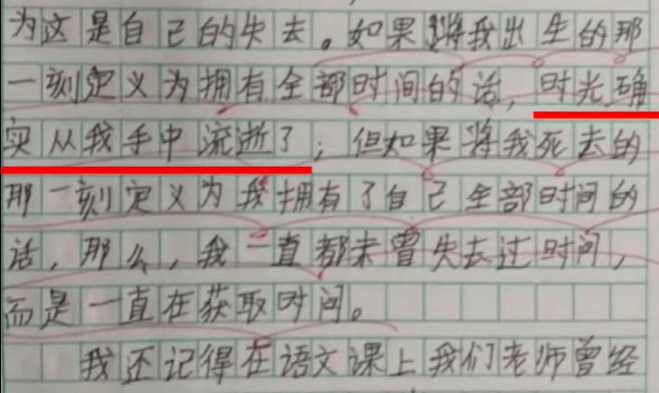 为这是自己的失去。如果将我出生的那
一刻定义为拥有全部时间的话，时光确
实从我手中流逝了；但如果将我死去的
那一刻定义为我拥有了自己全部时间的
话，那么，我一直都未曾失去过时间，
而是一直在获取时间。
我还记得在语文课上我们老师曾经